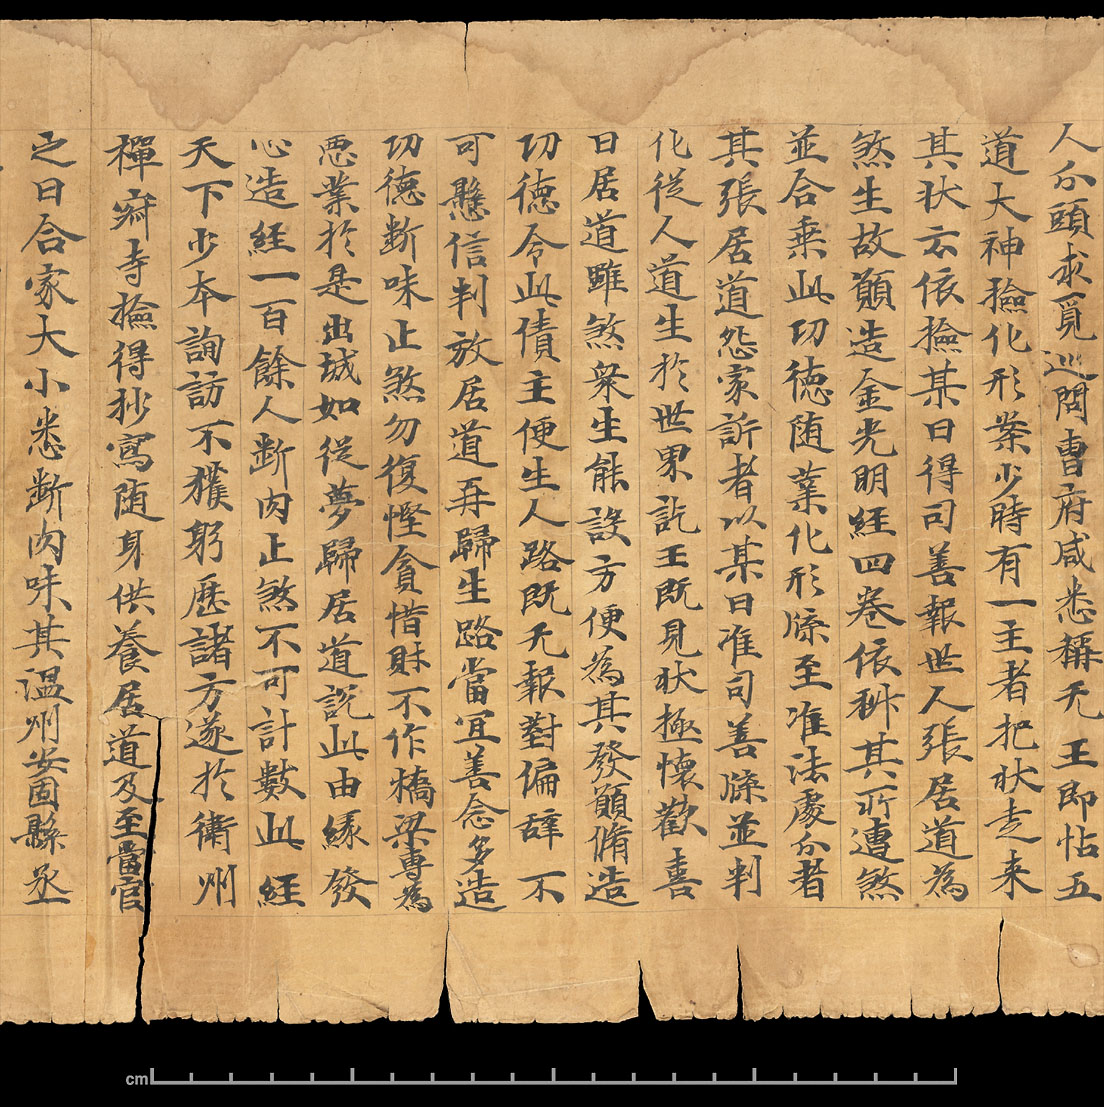 人分頭求覓巡問曹府咸悉稱无王即帖五
道大神撿化形案少時有一主者把狀走来
其狀云依撿某日得司善報世人張居道為
煞生故願造金光明經四卷依料其所遭煞
並合乗此功德随業化形牒至准法處分者
其張居道怨家訴者以某日准司善牒並判
化從人道生於世界訖王既見狀極懷歡喜
曰居道雖煞衆生能設方便為其發願脩造
功德令此債主便生人路既无報對偏辞不
可懸信判放居道再歸生路當宜善念多造
功德断味止煞勿復慳貪惜財不作橋梁専為
惡業於是出城如從夢歸居道説此由緣發
心造經一百餘人断肉止煞不可計數此經
天下少本詢訪不獲躬歷諸方遂於衛州
禪寂寺撿得抄寫随身供養居道及至當官
之日合家大小悉断肉味其温州安固縣丞